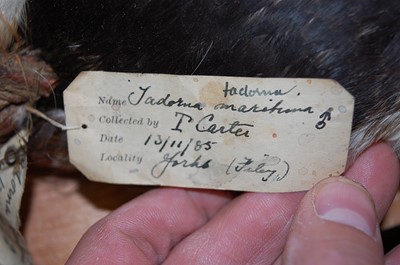 tadorna.
Name Tadorna maritima ♂
Collected by T Carter
Date 13/11/85
Locality Yorks (Filey)